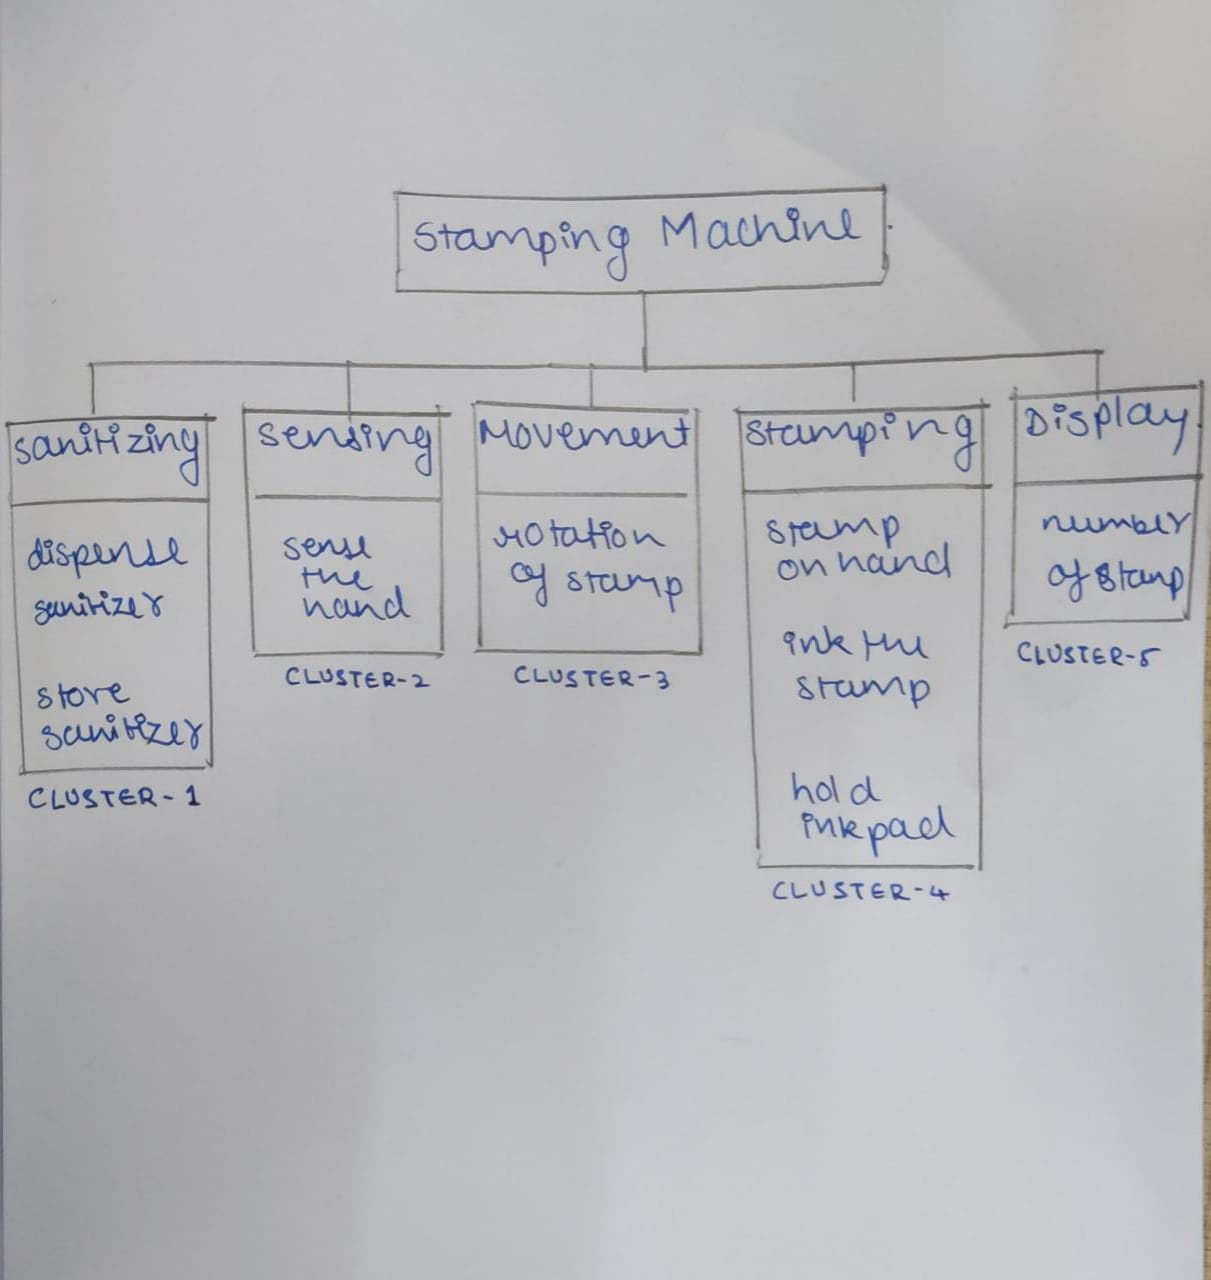 Stamping Machine
Sanitizing
dispense
sanitizer
store
sanitizer
CLUSTER-1
Sensing
sense
the
hand
CLUSTER-2
Movement
rotation
of stamp
CLUSTER-3
Stamping
stamp
on hand
ink the
stamp
hold
inkpad
CLUSTER-4
Display
number
of stamp
CLUSTER-5